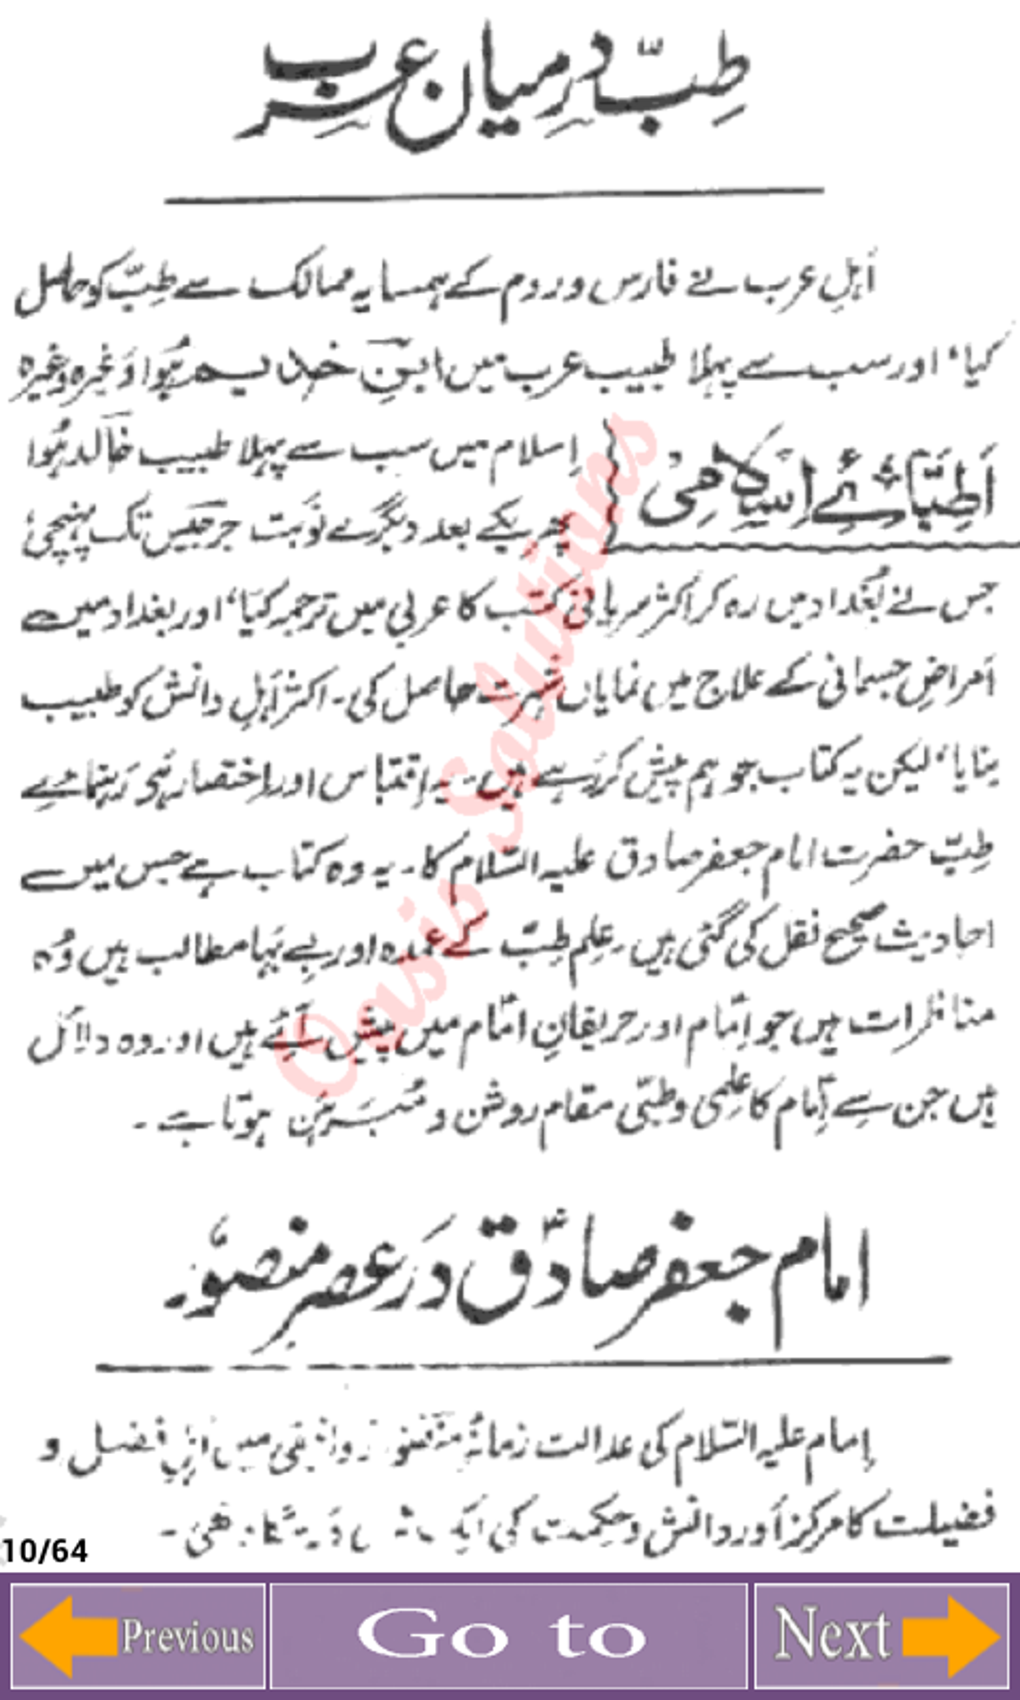 طِبّ درمیان عرب
اَہلِ عرب نے فارس و روم کے ہمسایہ ممالک سے طِبّ کو حاصل
کیا، اور سب سے پہلا طبیب عرب میں ابن ہُوا وَغیرہ وغیرہ
اَطِبّائے اِسلامی
اِسلام میں سب سے پہلا طبیب خالد ہُوا
پھر یکے بعد دیگرے نَوبت جرجیس تک پہنچی
جس نے بُغداد میں رہ کر اکثر سریانی کتب کا عربی میں ترجمہ کیَا، اور بغداد میں
اَمراضِ جسمانی کے علاج میں نمایاں شہرت حاصل کی۔ اکثر اَہلِ دانش کو طبیب
بنایا، لیکن یہ کتاب جو ہم پیش کر رہے ہیں۔ یہ اِقتباس اور اِختصار ہی رہنمائے
طِبّ حضرت امام جعفر صادق علیہ السّلام کا۔ یہ وہ کتاب ہے جس میں
احادیث صحیح نقل کی گئی ہیں۔ علِم طِبّ کے عمدہ اور بے بَہا مطالب ہیں وُہ
مناظرات ہیں جو اِمّام اور حریفانِ امّام میں پیش آئے ہیں اور وہ دلائل
ہیں جن سے اِمام کا عِلمی و طبّی مقام روشن و مُبَرہَن ہوتا ہے۔
امام جعفر صادق دَر عصرِ منصُور
اِمام علیہ السّلام کی عدالت زمانۂ منصُور دوانیقی میں اہلِ فضل و
فضیلت کا مرکز اَور دانش و حِکمت کی ایک تھی۔
10/64
Oasis Solutions
Previous
Go to
Next